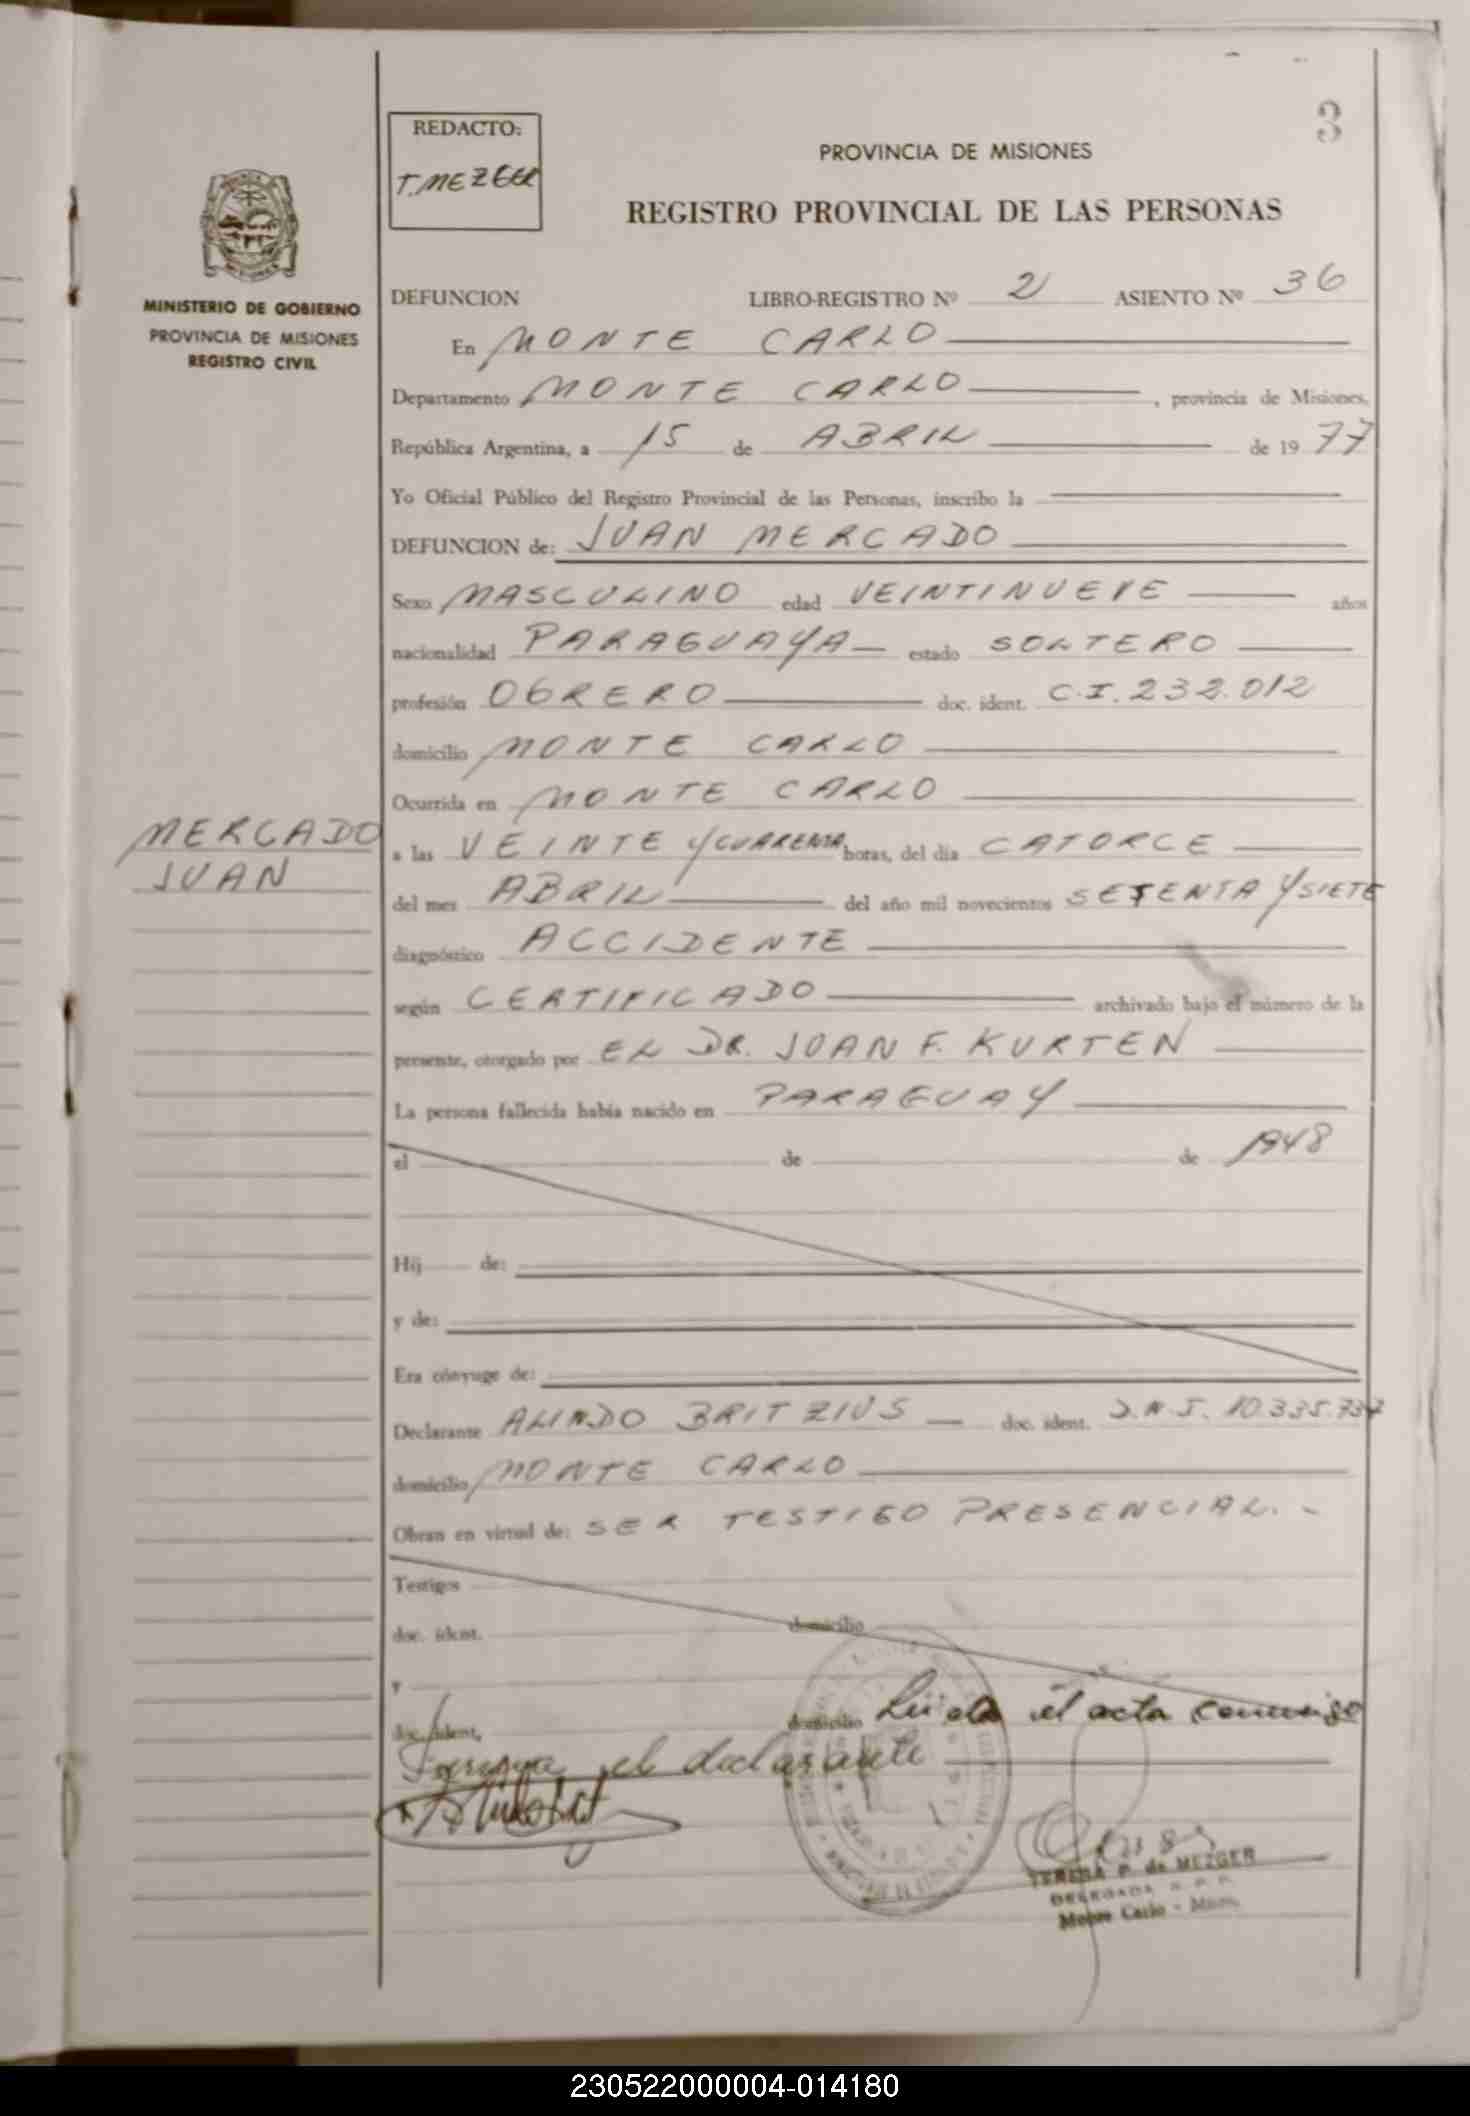 3
REDACTO:
T. MEZGER
PROVINCIA DE MISIONES
REGISTRO PROVINCIAL DE LAS PERSONAS
MINISTERIO DE GOBIERNO
PROVINCIA DE MISIONES
REGISTRO CIVIL
DEFUNCION LIBRO-REGISTRO Nº 2 ASIENTO Nº 36
En MONTE CARLO
Departamento MONTE CARLO, provincia de Misiones,
República Argentina, a 15 de ABRIL de 1977
Yo Oficial Público del Registro Provincial de las Personas, inscribo la
DEFUNCION de: JUAN MERCADO
Sexo MASCULINO edad VEINTINUEVE años
nacionalidad PARAGUAYA estado SOLTERO
profesión OBRERO doc. ident. C.I. 232.012
domicilio MONTE CARLO
Ocurrida en MONTE CARLO
MERCADO
JUAN
a las VEINTE Y CUARENTA horas, del día CATORCE
del mes ABRIL del año mil novecientos SETENTA Y SIETE
diagnóstico ACCIDENTE
según CERTIFICADO archivado bajo el número de la
presente, otorgado por EL DR. JUAN F. KURTEN
La persona fallecida había nacido en PARAGUAY
el de de 1948
Hij de:
y de:
Era cónyuge de:
Declarante ALINDO BRITZIUS doc. ident. D.N.I. 10.335.737
domicilio MONTE CARLO
Obran en virtud de: SER TESTIGO PRESENCIAL.-
Testigos
doc. ident. domicilio
y
doc. ident. domicilio Leída el acta conmigo
el declarante
TERESA P. de MEZGER
DELEGADA R. P. P.
Monte Carlo - Mnes.
230522000004-014180